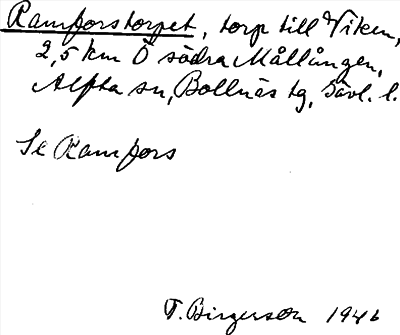 Ramforstorpet, torp till Viken,
2,5 km Ö södra Mållången,
Alfta sn, Bollnäs tg, Gävl. l.
Se Ramfors
T. Birgerson 1946